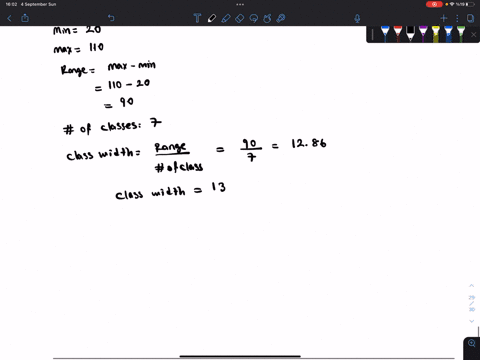 16:02 4 September Sun
%19
min = 20
max = 110
Range = max - min
= 110 - 20
= 90
# of classes: 7
class width = Range / # of class = 90 / 7 = 12.86
class width = 13
29
/
30